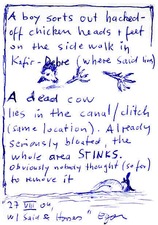 A boy sorts out hacked-
off chicken heads + feet
on the side walk in
Kafir-Debre (where Said lives)
A dead cow
lies in the canal/ditch
(same location). Already
seriously bloated, the
whole area STINKS.
Obviously nobody thought (so far)
to remove it
27 VIII 04,
w/ Said &